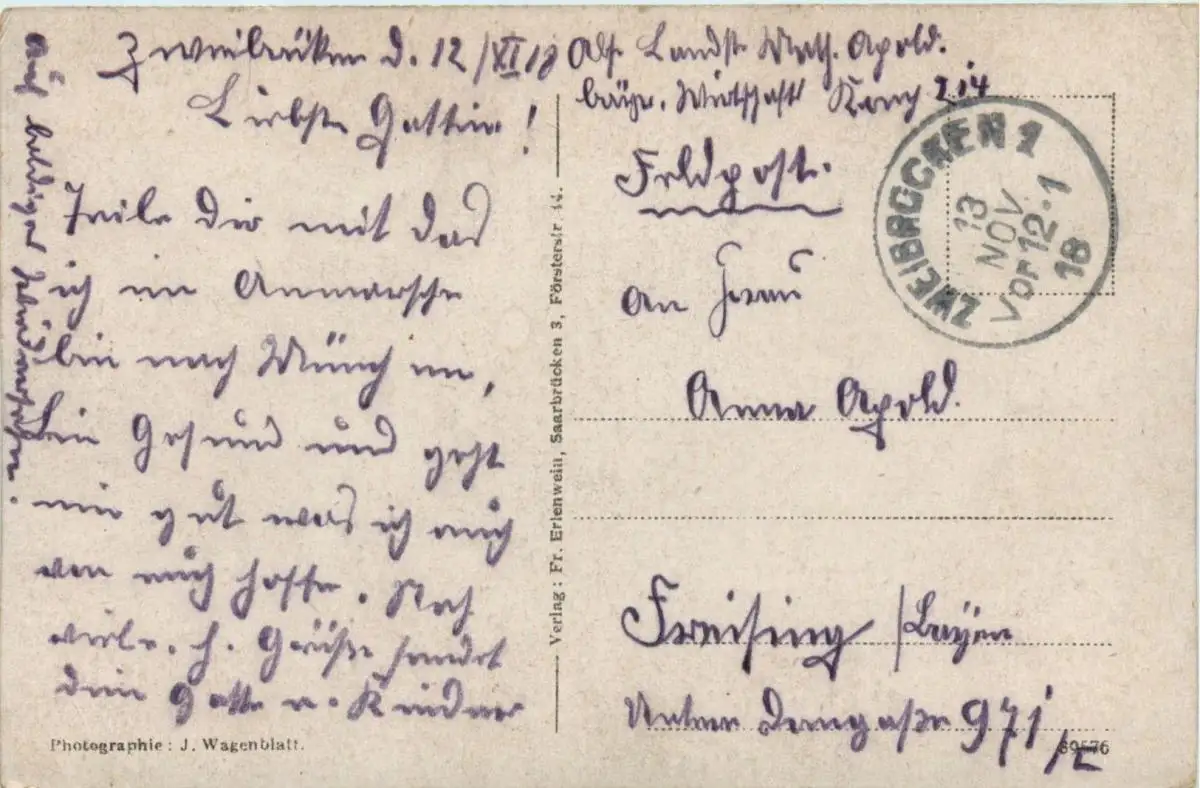 Zweibrüken d. 12/XI 18
Liebste Gattin!
Teile dir mit das
ich im Anmarsche
bin nach München,
bin Gesund und geht
mir gut was ich auch
von euch hoffe. Noch
viele. h. Grüße sendet
dein Gatte u. Kinder
auf baldiges
Abs. Landst. Math. Apold.
bayr. Wirtschafts Komp 214
Feldpost.
An Frau
Anna Apold.
Freising / Bayern
Untere Domgaße 971
/I
ZWEIBRÜCKEN 1
13
NOV
Vor 12-1
18
Verlag: Fr. Erlenwein, Saarbrücken 3, Försterstr. 14.
Photographie: J. Wagenblatt.
89576